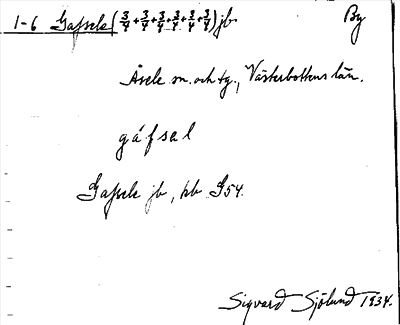 1-6 Gafsele (3/4+3/4+3/4+3/4+3/4+3/4) jb. By
Åsele sn. och tg., Västerbottens län.
gáfsal
Gafsele jb, kb G54.
Sigvard Sjölund 1934.